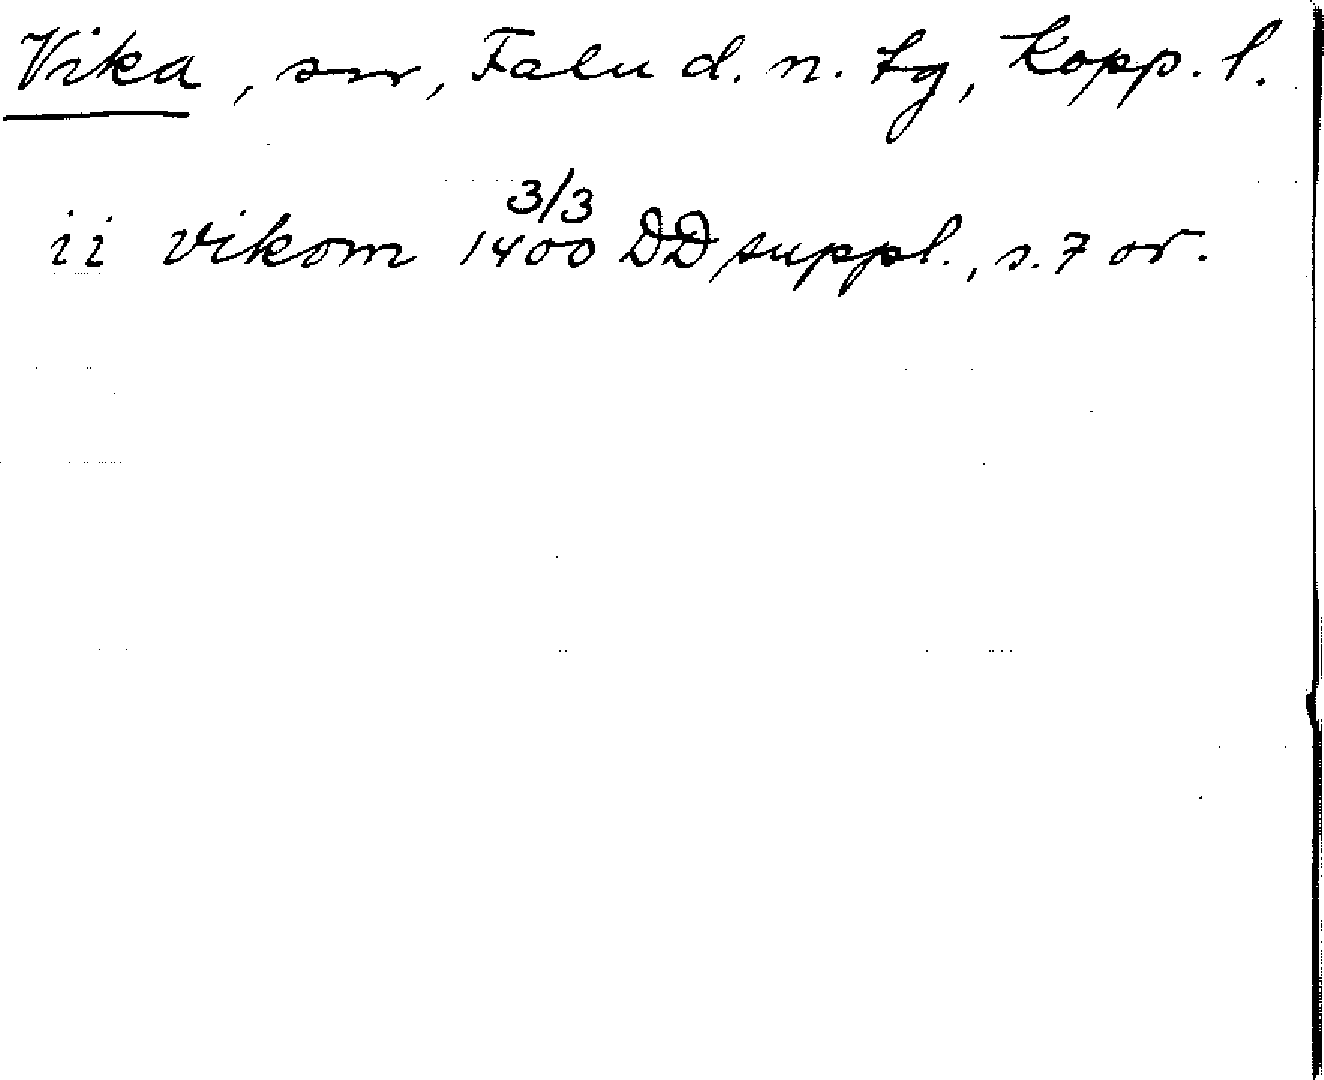 Vika, sn, Falu d. n. tg, Kopp. l.
ii vikom 3/3 1400 DD suppl., s. 7 or.